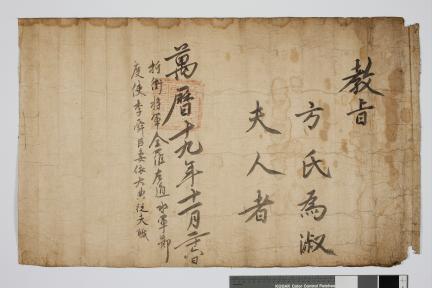 教旨
方氏爲淑
夫人者
萬曆十九年十二月日
折衝將軍全羅左道水軍節
度使李舜臣妻依大典從夫職
KODAK Color Control Patches